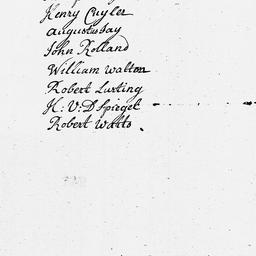 Henry Cuyler
Augustus Jay
John Rolland
William Walton
Robert Lurting
H: V: D Spiegel
Robert Watts.